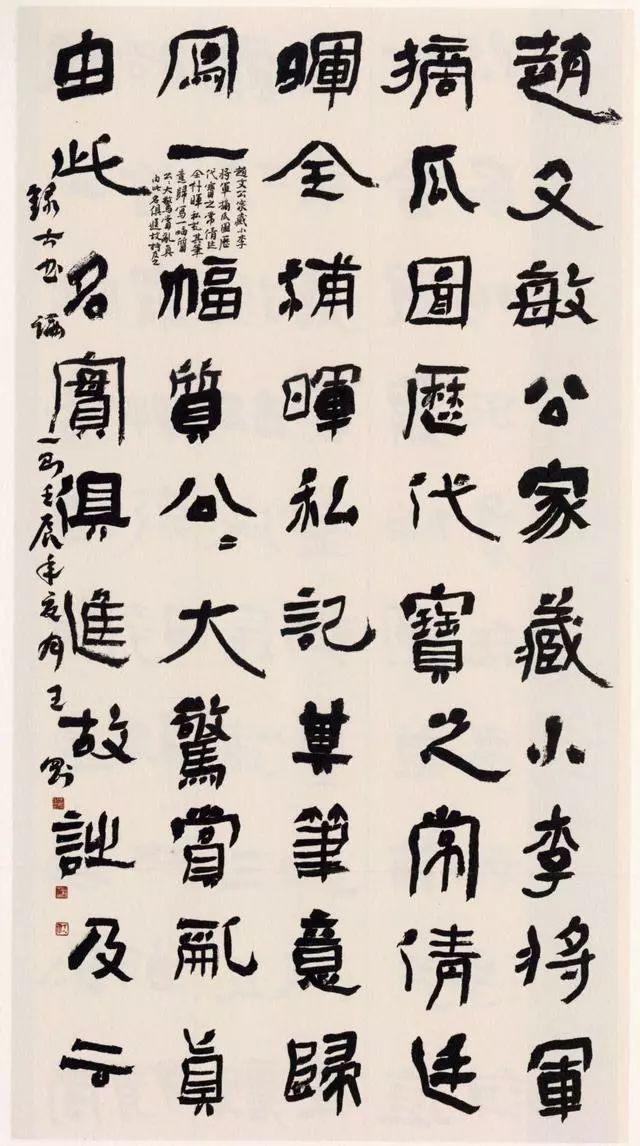 趙文敏公家藏小李將軍
摘瓜圖歷代寶之常倩廷
暉全補暉私記其筆意歸
寫一幅質公=大驚賞亂真
由此名實俱進故及云
趙文公家藏小李
將軍摘瓜圖歷
代寶之常倩廷
暉私記其筆
意歸寫一幅質
公=大驚賞亂真
由此名俱進故
錄古畫論一則壬辰年夏月王